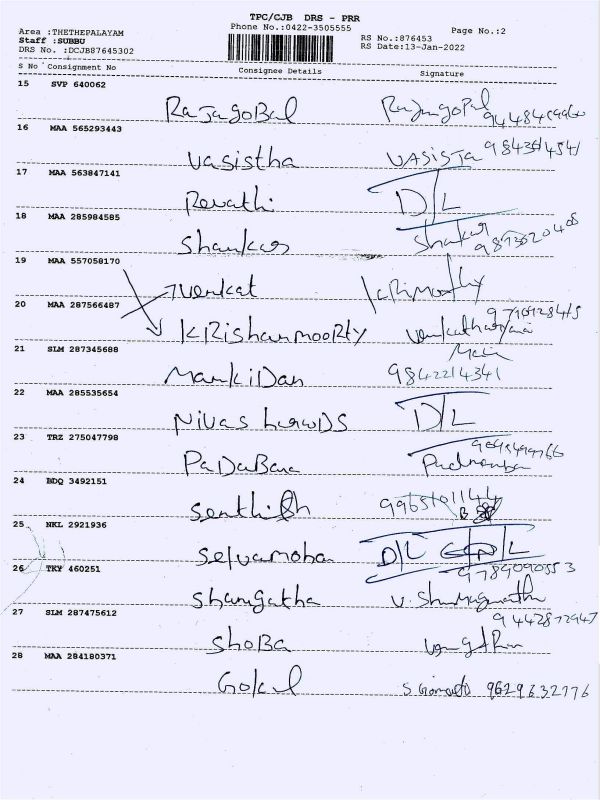 TPC/CJB DRS - PRR
Area :THETHEPALAYAM Phone No.:0422-3505555 Page No.:2
Staff :SUBBU RS No.:876453
DRS No. :DCJB87645302 RS Date:13-Jan-2022
S No Consignment No Consignee Details Signature
15 SVP 640062
RajagoBal Rajagopal
16 MAA 565293443
vasistha VASISTA
17 MAA 563847141
Revathi D/L
18 MAA 285984585
Shankar Shankar 9873020408
19 MAA 557058170
venkat KRimoorthy
20 MAA 287566487
KRishanmooRty
21 SLM 287345688
ManKiDan 9842214341
22 MAA 285535654
Nivas D/L
23 TRZ 275047798
PaDaBana
24 BDQ 3492151
Senthil 9965101144
25 NKL 2921936
Selvamoha D/L
26 TKY 460251 9789090553
Shanugatha
27 SLM 287475612 9442872947
ShoBa
28 MAA 284180371
Gokul 9629632776